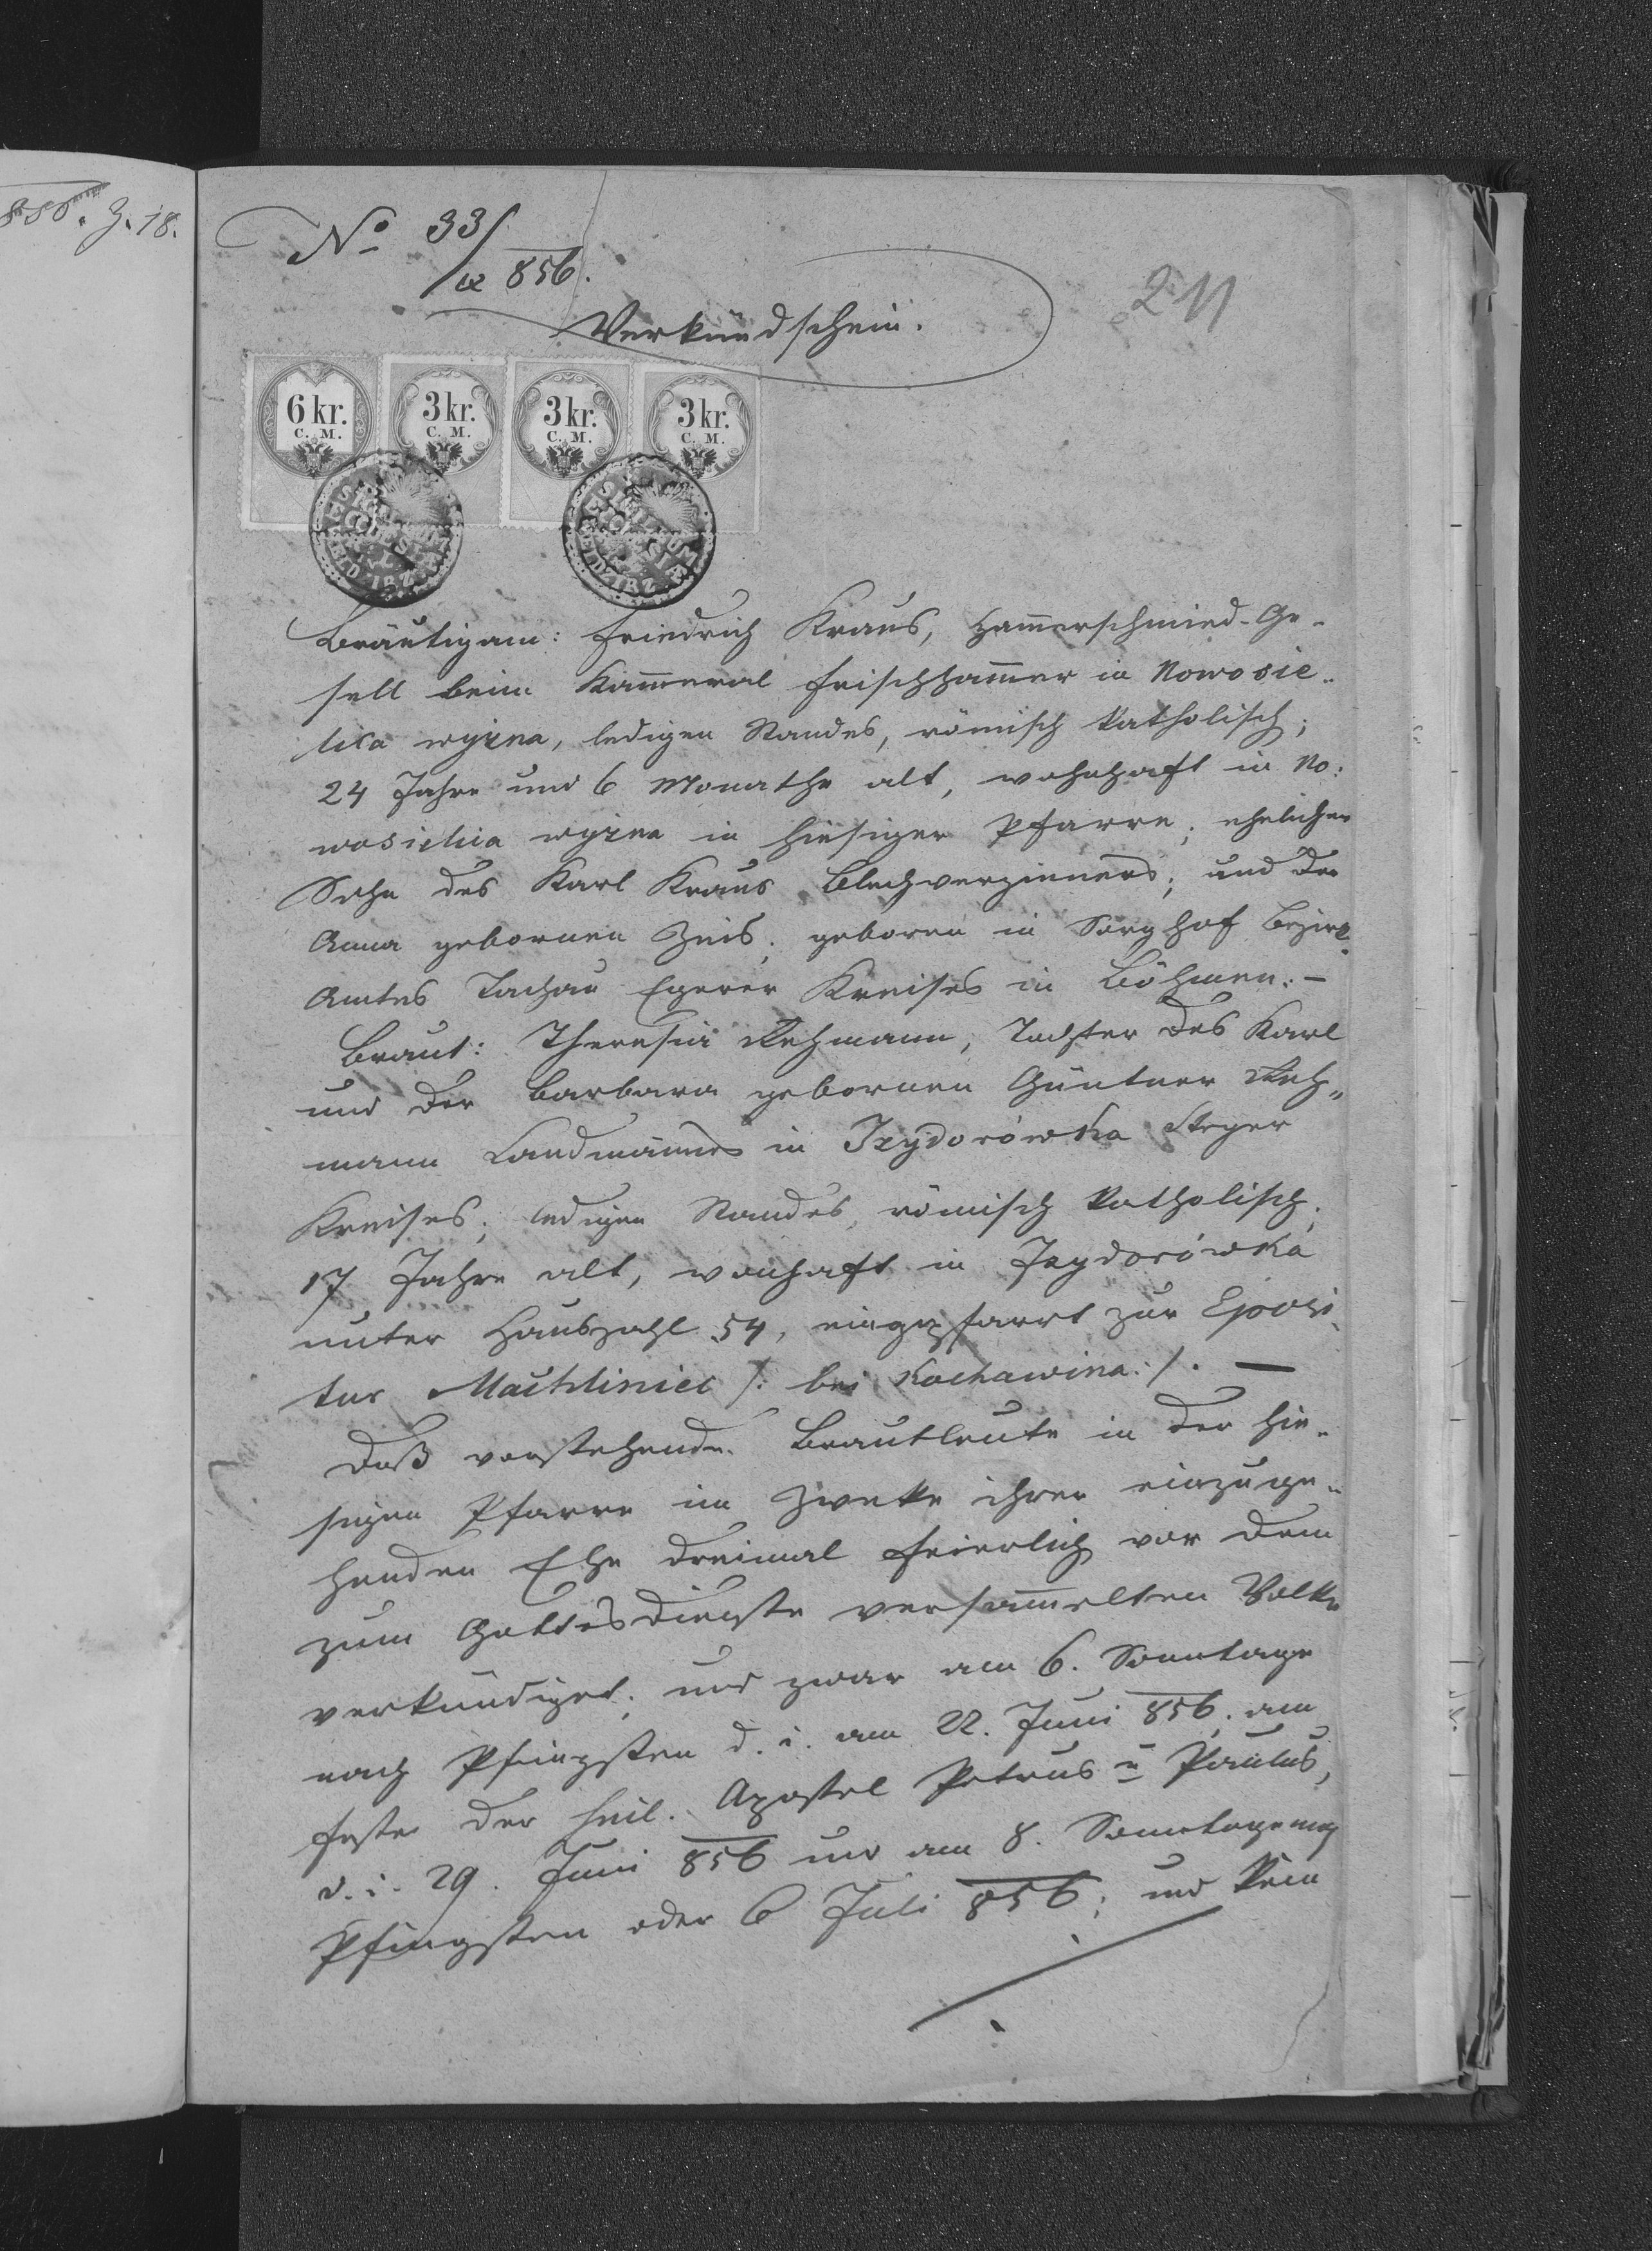 856. Z. 18.
No 33/
ex 856.
211
Verkündschein.
6 kr. 3 kr. 3 kr. 3 kr.
C. M. C. M. C. M. C. M.
Bräutigam: Friedrich Kraus, Ham̄erschmied-Ge-
sell beim Kam̄eral Frischham̄er in Nowosie-
lica wyżna, ledigen Standes, römisch katholisch;
24 Jahre und 6 Monathe alt, wohnhaft in No:
wosielica wyżna in hiesiger Pfarre; ehelicher
Sohn des Karl Kraus Blechverzinners; und der
Anna gebornen Zeis; geboren in Sorghof Bezirk-
Amtes Tachau Egerer Kreises in Böhmen.-
Braut: Theresia Rehmann, Tochter des Karl
und der Barbara gebornen Güntner Reh-
mann Landmanns in Izydorówka Stryer
Kreises; ledigen Standes, römisch katholisch;
17 Jahre alt, wonhaft in Izydorówka
unter Hauszahl 54, eingepfarrt zur Exposi-
tur Machliniec /: bei Kochawina:/. —
Daß vorstehende Brautleute in der hie-
sigen Pfarre im Zweke ihrer einzuge-
henden Ehe dreimal feierlich vor dem
zum Gottesdienste versam̄elten Volke
verkündiget; und zwar am 6. Sonntage
nach Pfingsten d. i. am 22. Juni 856; am
Feste der heil. Apostel Petrus u Paulus,
d. i. 29. Juni 856 und am 8. Sonntage nach
Pfingsten oder 6 Juli 856; und kein